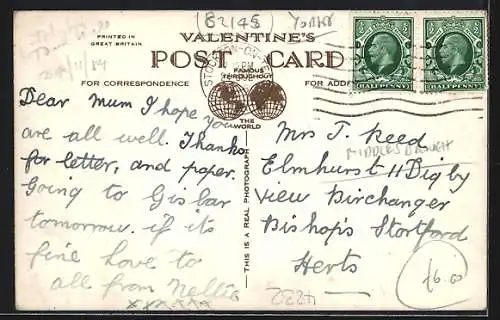 (B2145)
YORKS
PRINTED IN
GREAT BRITAIN
VALENTINE'S
POST CARD
FAMOUS
THROUGHOUT
THE
WORLD
FOR CORRESPONDENCE
FOR ADDR
STOCKTON-ON-T
HALFPENNY
HALFPENNY
24/11/84
Dear Mum I hope you
are all well. Thanks
for letter, and paper.
Going to Gisbar
tomorrow. if its
fine love to
all from Nellie
xx
THIS IS A REAL PHOTOGRAPH
Mrs J. Reed
MIDDLESBROUGH
Elmhurst 11 Digby
View Birchanger
Bishop's Stortford
Herts
£6.00